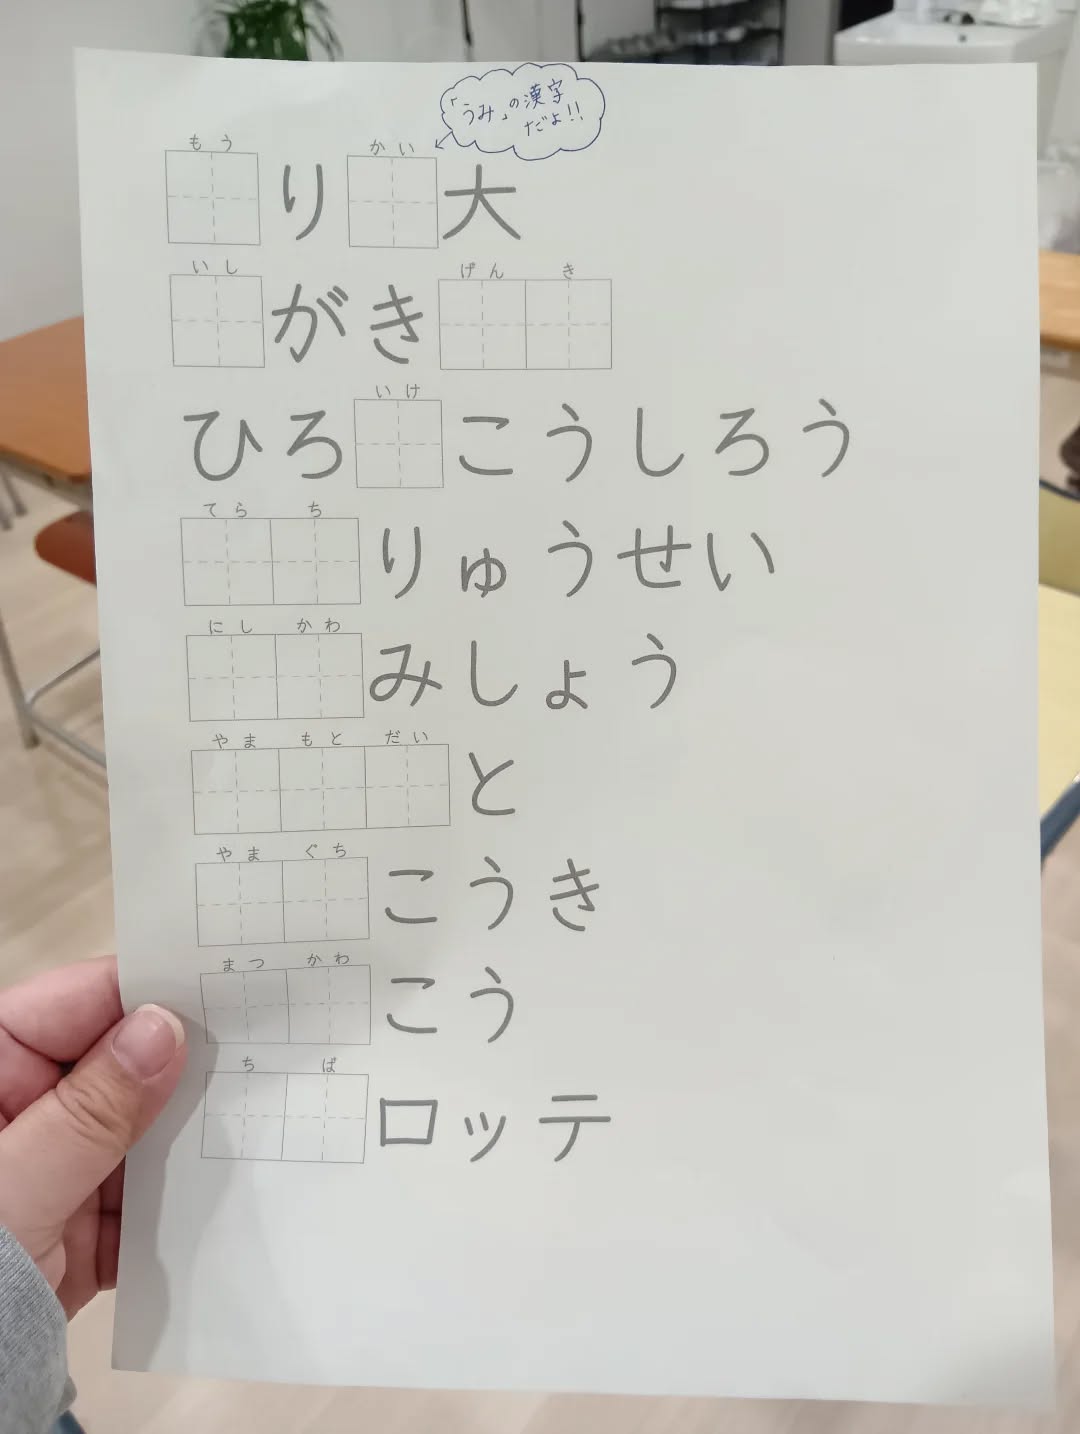 「うみ」の漢字
だよ!!
もう かい
り 大
いし げん き
がき
いけ
ひろ こうしろう
てら ち
りゅうせい
にし かわ
みしょう
やま もと だい
と
やま ぐち
こうき
まつ かわ
こう
ち ば
ロッテ